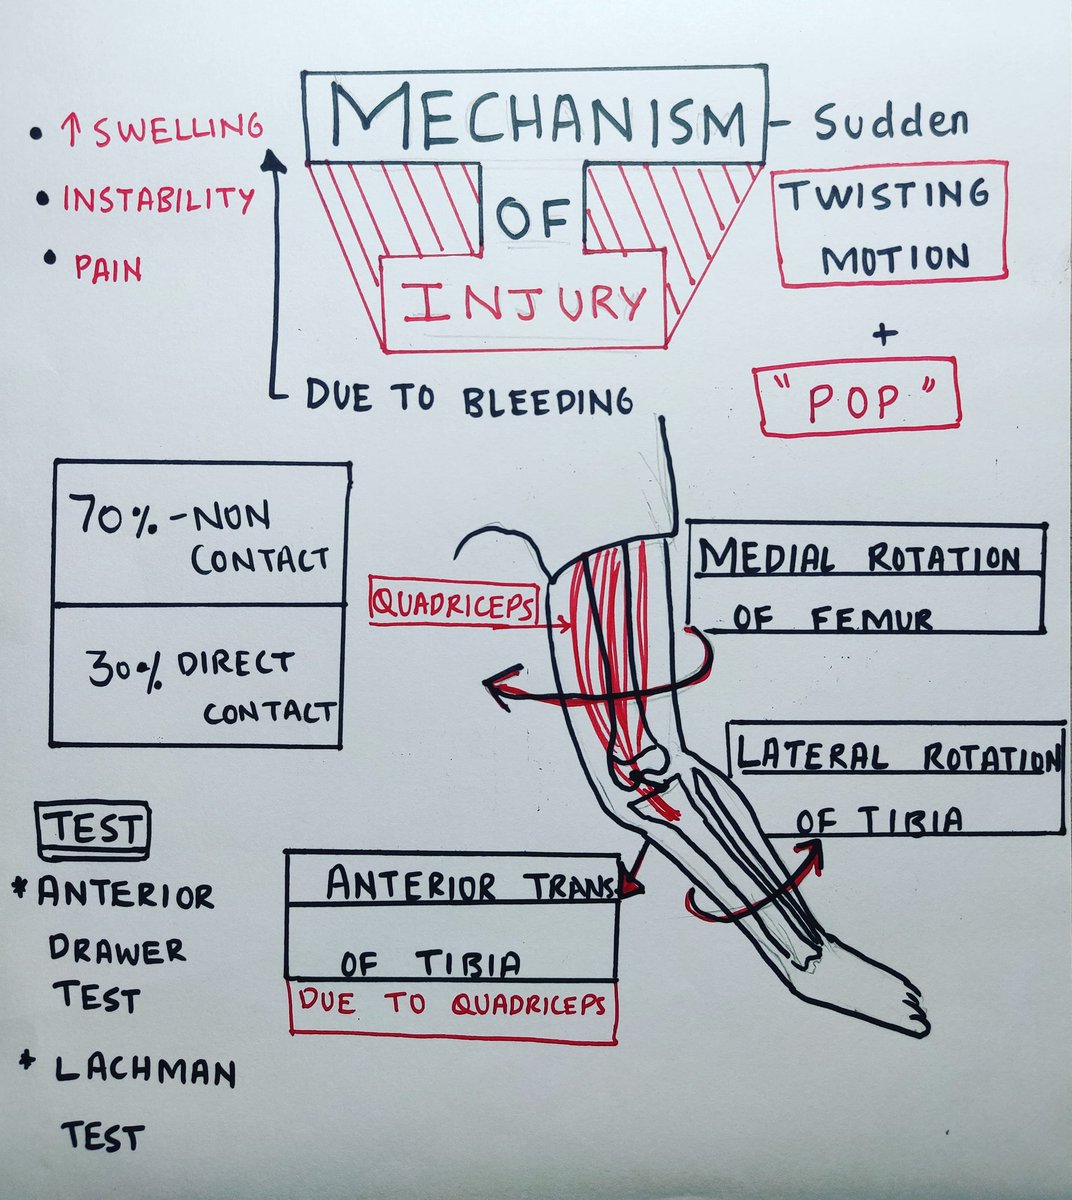 MECHANISM
OF
INJURY
- Sudden
TWISTING
MOTION
+
"POP"
• ↑ SWELLING
• INSTABILITY
• PAIN
DUE TO BLEEDING
70% - NON
CONTACT
30% DIRECT
CONTACT
QUADRICEPS
MEDIAL ROTATION
OF FEMUR
LATERAL ROTATION
OF TIBIA
ANTERIOR TRANS.
OF TIBIA
DUE TO QUADRICEPS
TEST
* ANTERIOR
DRAWER
TEST
* LACHMAN
TEST